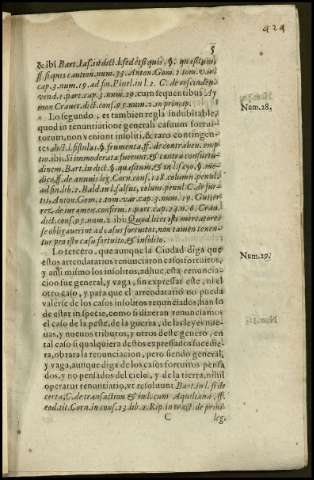 424
5
& ibi Bart. Ias. in dict. l. sed & si quis, §. quæsitum,
ff. si quis caution. num. 35. Anton. Gom. 2. tom. var.
cap. 3. num. 19. ad fin. Pinel. in l. 2. C. de rescinden.
vend. 1. part. cap. 3. num. 29. cum sequentibus, Ay-
mon Crauet. dict. cons. 95. num. 2. in princip.
Lo segundo, et tambien regla indubitable, Num. 28.
quod in renuntiatione generali casuum fortui-
torum, non veniunt insoliti, & raro contingen-
tes dict. l. fistulas §. frumenta ff. de contrahen. emp-
tio. ibi: Si immoderata fuerunt, & contra consuetu-
dinem. Bart. in dict. §. quæsitum, & in l. fayo §. me-
dico. ff. de annuis leg. Corn. cons. 128. column. penult.
ad fin. lib. 2. Bald. in l. falsus, column. penul. C. de fur-
tis, Anton. Gom. 2. tom. var. cap. 3. num. 19. Gutier-
rez, de iuram. confirm. 1. part. cap. 24. n. 6. Crau.
dict. cons. 95. num. 2. ibi: Quod licet isti mercatores
se obligauerint ad casus fortuitos, non tamen tenen-
tur pro isto casu fortuito, & insolito.
Lo tercero, que aunque la Ciudad diga que Num. 29.
estos arrendatarios renunciaron casos fortuitos,
y assi mismo los insolitos, adhuc esta renuncia-
cion fue general, y vaga, sin expressar este, ni el
otro caso, y para que el arrendatario no pueda
valerse de los casos insolitos renunciados, han lo
de estar in specie, como si dixeran renunciamos
el caso de la peste, de la guerra, de las leyes nue-
uas, y nueuos tributos, y otros deste genero, en
tal caso si qualquiera destos expressados sucedie-
ra, obrara la renunciacion, pero siendo general,
y vaga, aunque diga de los casos fortuitos pensa
dos, y no pensados del cielo, y de la tierra, nihil
operatur renuntiatio, vt resoluunt Bart. in l. si de
certa, C. de transaction & in l. cum Aquiliana, ff.
eod. tit. Corn. in cons. 23. lib. 2. Rip. in tract. de priui-
C leg.